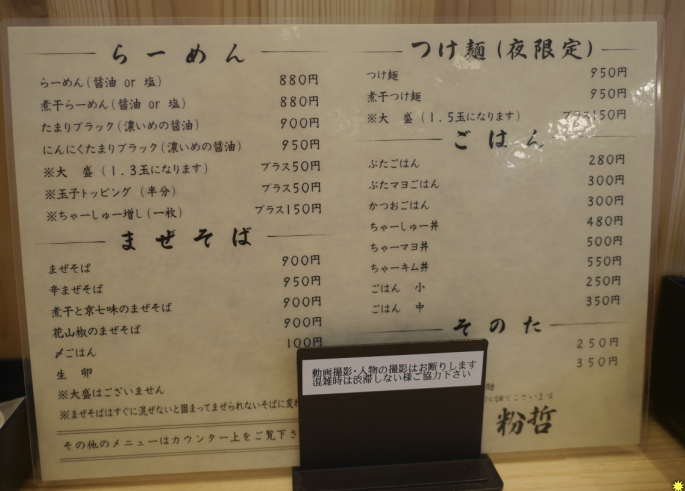 らーめん
らーめん(醤油 or 塩) 880円
煮干らーめん(醤油 or 塩) 880円
たまりブラック(濃いめの醤油) 900円
にんにくたまりブラック(濃いめの醤油) 950円
※大 盛(1.3玉になります) プラス50円
※玉子トッピング(半分) プラス50円
※ちゃーしゅー増し(一枚) プラス150円
まぜそば
まぜそば 900円
辛まぜそば 950円
煮干と京七味のまぜそば 900円
花山椒のまぜそば 900円
〆ごはん 100円
生 卵
※大盛はございません
※まぜそばはすぐに混ぜないと固まってまぜられないそばに変わ
その他のメニューはカウンター上をご覧下さ
つけ麺(夜限定)
つけ麺 950円
煮干つけ麺 950円
※大 盛(1.5玉になります) プラス150円
ごはん
ぶたごはん 280円
ぶたマヨごはん 300円
かつおごはん 300円
ちゃーしゅー丼 480円
ちゃーマヨ丼 500円
ちゃーキム丼 550円
ごはん 小 250円
ごはん 中 350円
そのた
250円
350円
麺
粉哲
動画撮影・人物の撮影はお断りします
混雑時は渋滞しない様ご協力下さい